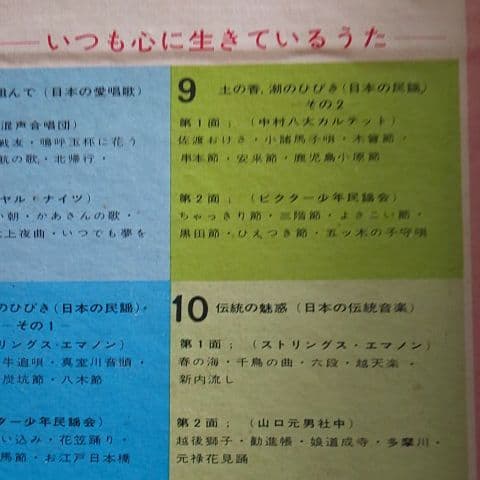 いつも心に生きているうた
組んで（日本の愛唱歌）
混声合唱団）
戦友・嗚呼玉杯に花う
航の歌・北帰行・
ヤル・ナイツ）
い朝・かあさんの歌・
上夜曲・いつでも夢を
9 土の香，潮のひびき（日本の民謡）
―その2
第1面；（中村八大カルテット）
佐渡おけさ・小諸馬子唄・木曾節・
串本節・安来節・鹿児島小原節
第2面；（ビクター少年民謡会）
ちゃっきり節・三階節・よさこい節・
黒田節・ひえつき節・五ッ木の子守唄
のひびき（日本の民謡）・
―その1―
リングス・エマノン）
牛追唄・真室川音頭・
炭坑節・八木節
ター少年民謡会）
い込み・花笠踊り・
馬節・お江戸日本橋
10 伝統の魅惑（日本の伝統音楽）
第1面；（ストリングス・エマノン）
春の海・千鳥の曲・六段・越天楽・
新内流し
第2面；（山口元男社中）
越後獅子・勧進帳・娘道成寺・多摩川・
元禄花見踊